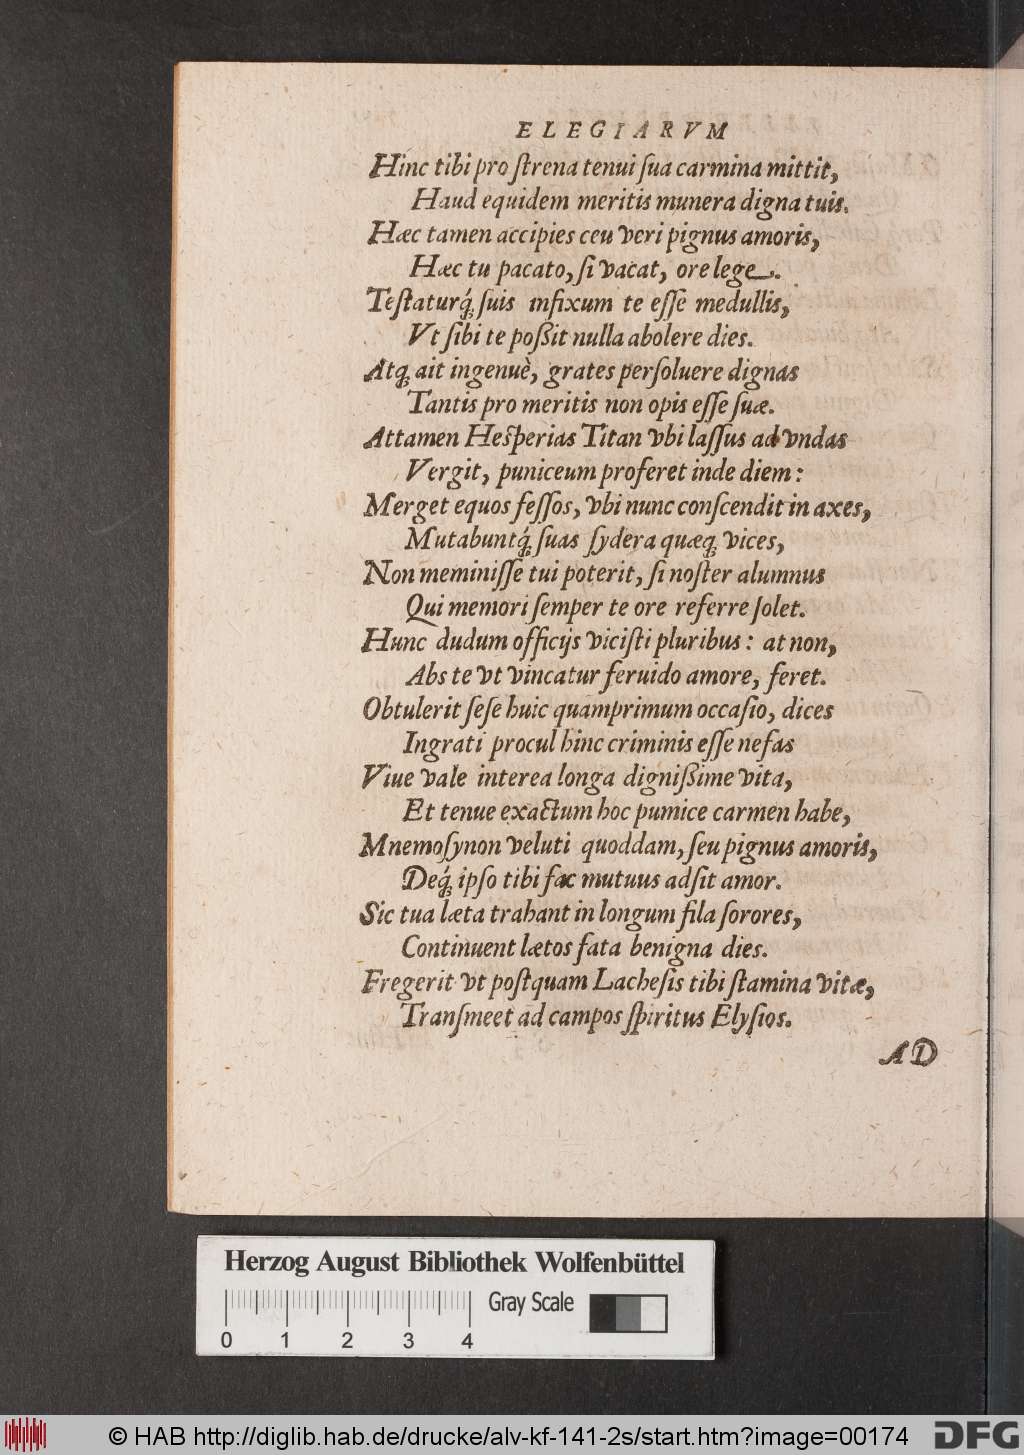 ELEGIARVM
Hinc tibi pro ſtrena tenui ſua carmina mittit,
Haud equidem meritis munera digna tuis.
Hæc tamen accipies ceu veri pignus amoris,
Hæc tu pacato, ſi vacat, ore lege.
Teſtaturq́; ſuis infixum te eſſe medullis,
Vt ſibi te poßit nulla abolere dies.
Atq; ait ingenuè, grates perſoluere dignas
Tantis pro meritis non opis eſſe ſuæ.
Attamen Heſperias Titan vbi laſſus ad vndas
Vergit, puniceum proferet inde diem:
Merget equos feſſos, vbi nunc conſcendit in axes,
Mutabuntq́; ſuas ſydera quæq; vices,
Non meminiſſe tui poterit, ſi noſter alumnus
Qui memori ſemper te ore referre ſolet.
Hunc dudum officijs viciſti pluribus: at non,
Abs te vt vincatur feruido amore, feret.
Obtulerit ſeſe huic quamprimum occaſio, dices
Ingrati procul hinc criminis eſſe nefas
Viue vale interea longa dignißime vita,
Et tenue exactum hoc pumice carmen habe,
Mnemoſynon veluti quoddam, ſeu pignus amoris,
Deq́; ipſo tibi fac mutuus adſit amor.
Sic tua læta trahant in longum fila ſorores,
Continuent lætos fata benigna dies.
Fregerit vt poſtquam Lacheſis tibi ſtamina vitæ,
Tranſmeet ad campos ſpiritus Elyſios.
AD
Herzog August Bibliothek Wolfenbüttel
Gray Scale
0 1 2 3 4
© HAB http://diglib.hab.de/drucke/alv-kf-141-2s/start.htm?image=00174
DFG